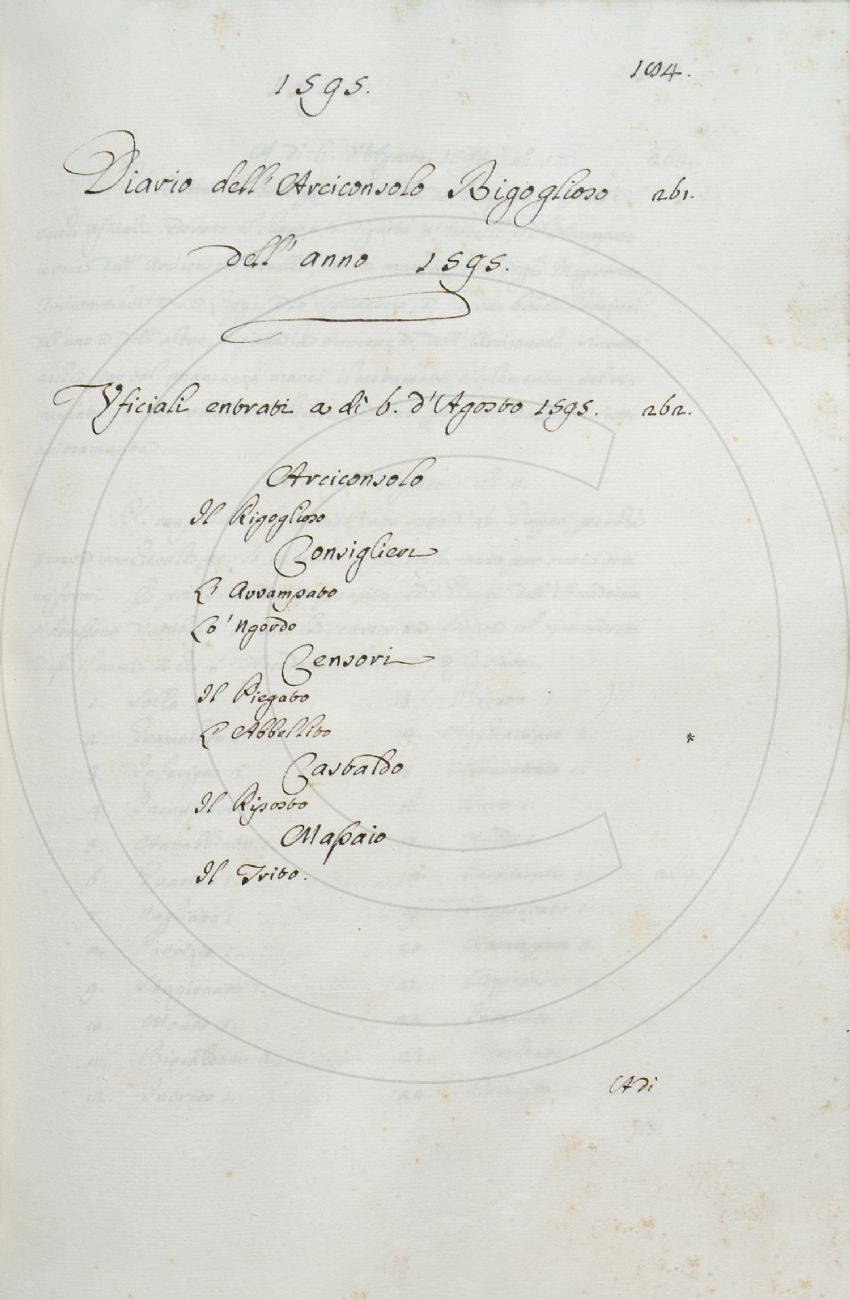 1595.
104.
Diario dell'Arciconsolo Rigoglioso 261.
dell'anno 1595.
Vficiali entrati a dì 6. d'Agosto 1595. 262.
Arciconsolo
Il Rigoglioso
Consiglieri
L'Avvampato
Lo 'Ngordo
Censori
Il Piegato
L'Abbellito
Castaldo
Il Riposto
Massaio
Il Trito.
Adi